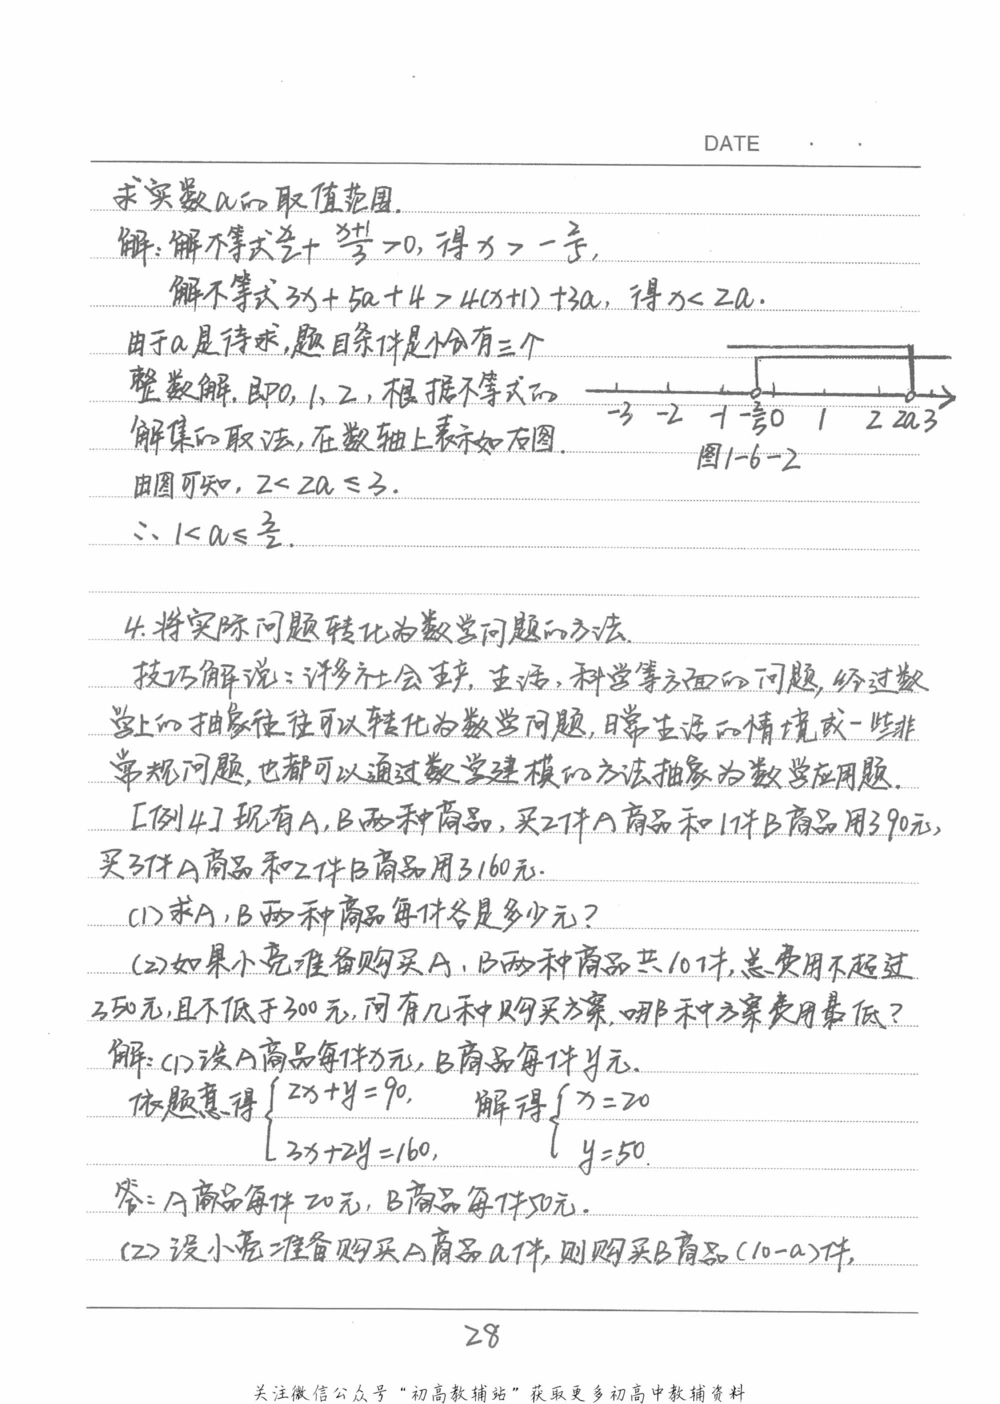 DATE · ·
求实数a的取值范围.
解:解不等式x/2+(x+1)/3>0,得x>-2/5,
解不等式3x+5a+4>4(x+1)+3a,得x<2a.
由于a是待求,题目条件是恰有三个
整数解,即0,1,2,根据不等式的
解集的取法,在数轴上表示如右图.
-3 -2 -1 -2/5 0 1 2 2a 3
图1-6-2
由图可知,2<2a≤3.
∴1<a≤3/2.
4.将实际问题转化为数学问题的方法.
技巧解说:许多社会生产,生活,科学等方面的问题,经过数
学上的抽象往往可以转化为数学问题,日常生活的情境或一些非
常规问题,也都可以通过数学建模的方法抽象为数学应用题.
[例4]现有A,B两种商品,买2件A商品和1件B商品用390元,
买3件A商品和2件B商品用3160元.
(1)求A,B两种商品每件各是多少元?
(2)如果小亮准备购买A,B两种商品共10件,总费用不超过
350元,且不低于300元,问有几种购买方案,哪种方案费用最低?
解:(1)设A商品每件x元,B商品每件y元.
依题意得{2x+y=90, 解得{x=20
3x+2y=160, y=50.
答:A商品每件20元,B商品每件50元.
(2)设小亮准备购买A商品a件,则购买B商品(10-a)件,
28
关注微信公众号“初高教辅站”获取更多初高中教辅资料